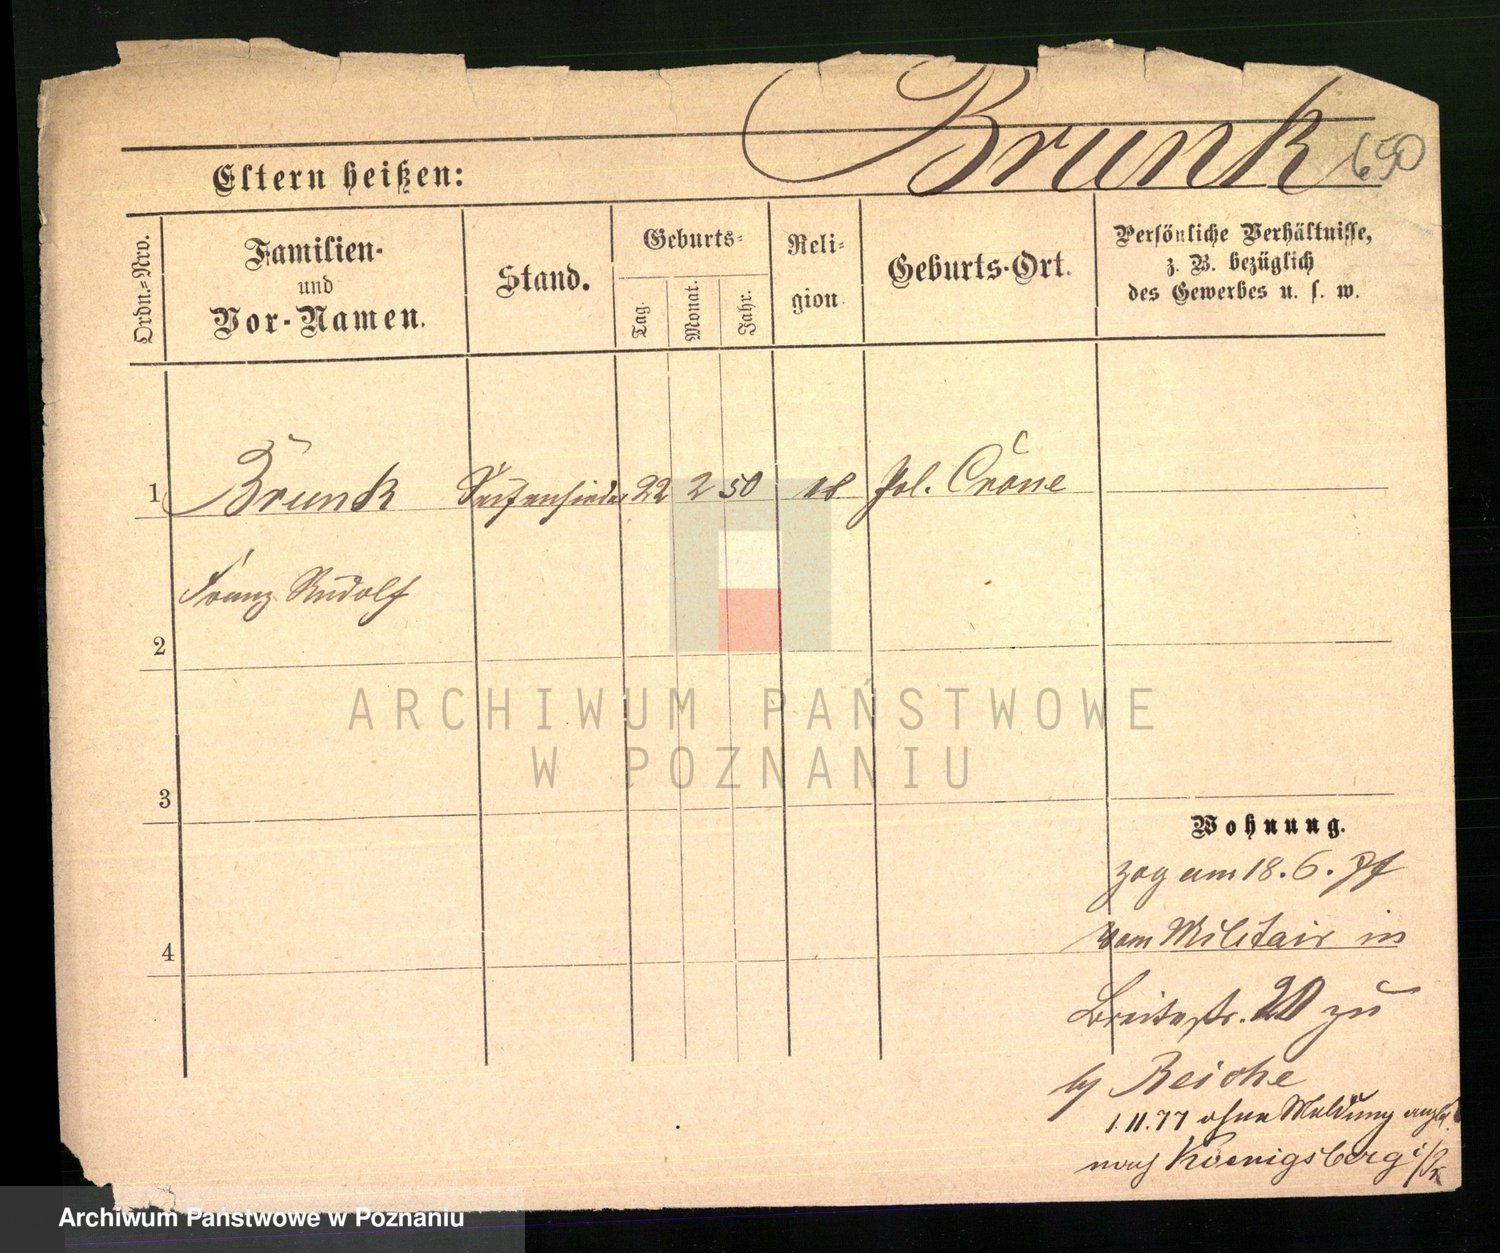 Brunk 650
Eltern heißen:
Ordn.=Nro.
Familien-
und
Vor-Namen.
Stand.
Geburts=
Tag.
Monat.
Jahr.
Reli=
gion
Geburts-Ort.
Persönliche Verhältnisse,
z. B. bezüglich
des Gewerbes u. s. w.
1 Brunk Seifensieder 22 2 50 Pol. Crone
Franz Rudolf
2
ARCHIWUM PAŃSTWOWE
W POZNANIU
3
Wohnung.
zog am 18. 6.
4
vom Militair in
Breitestr. 20 zu
Reiche
1.11.77 ohne Meldung
nach Koenigsberg i/Pr
Archiwum Państwowe w Poznaniu